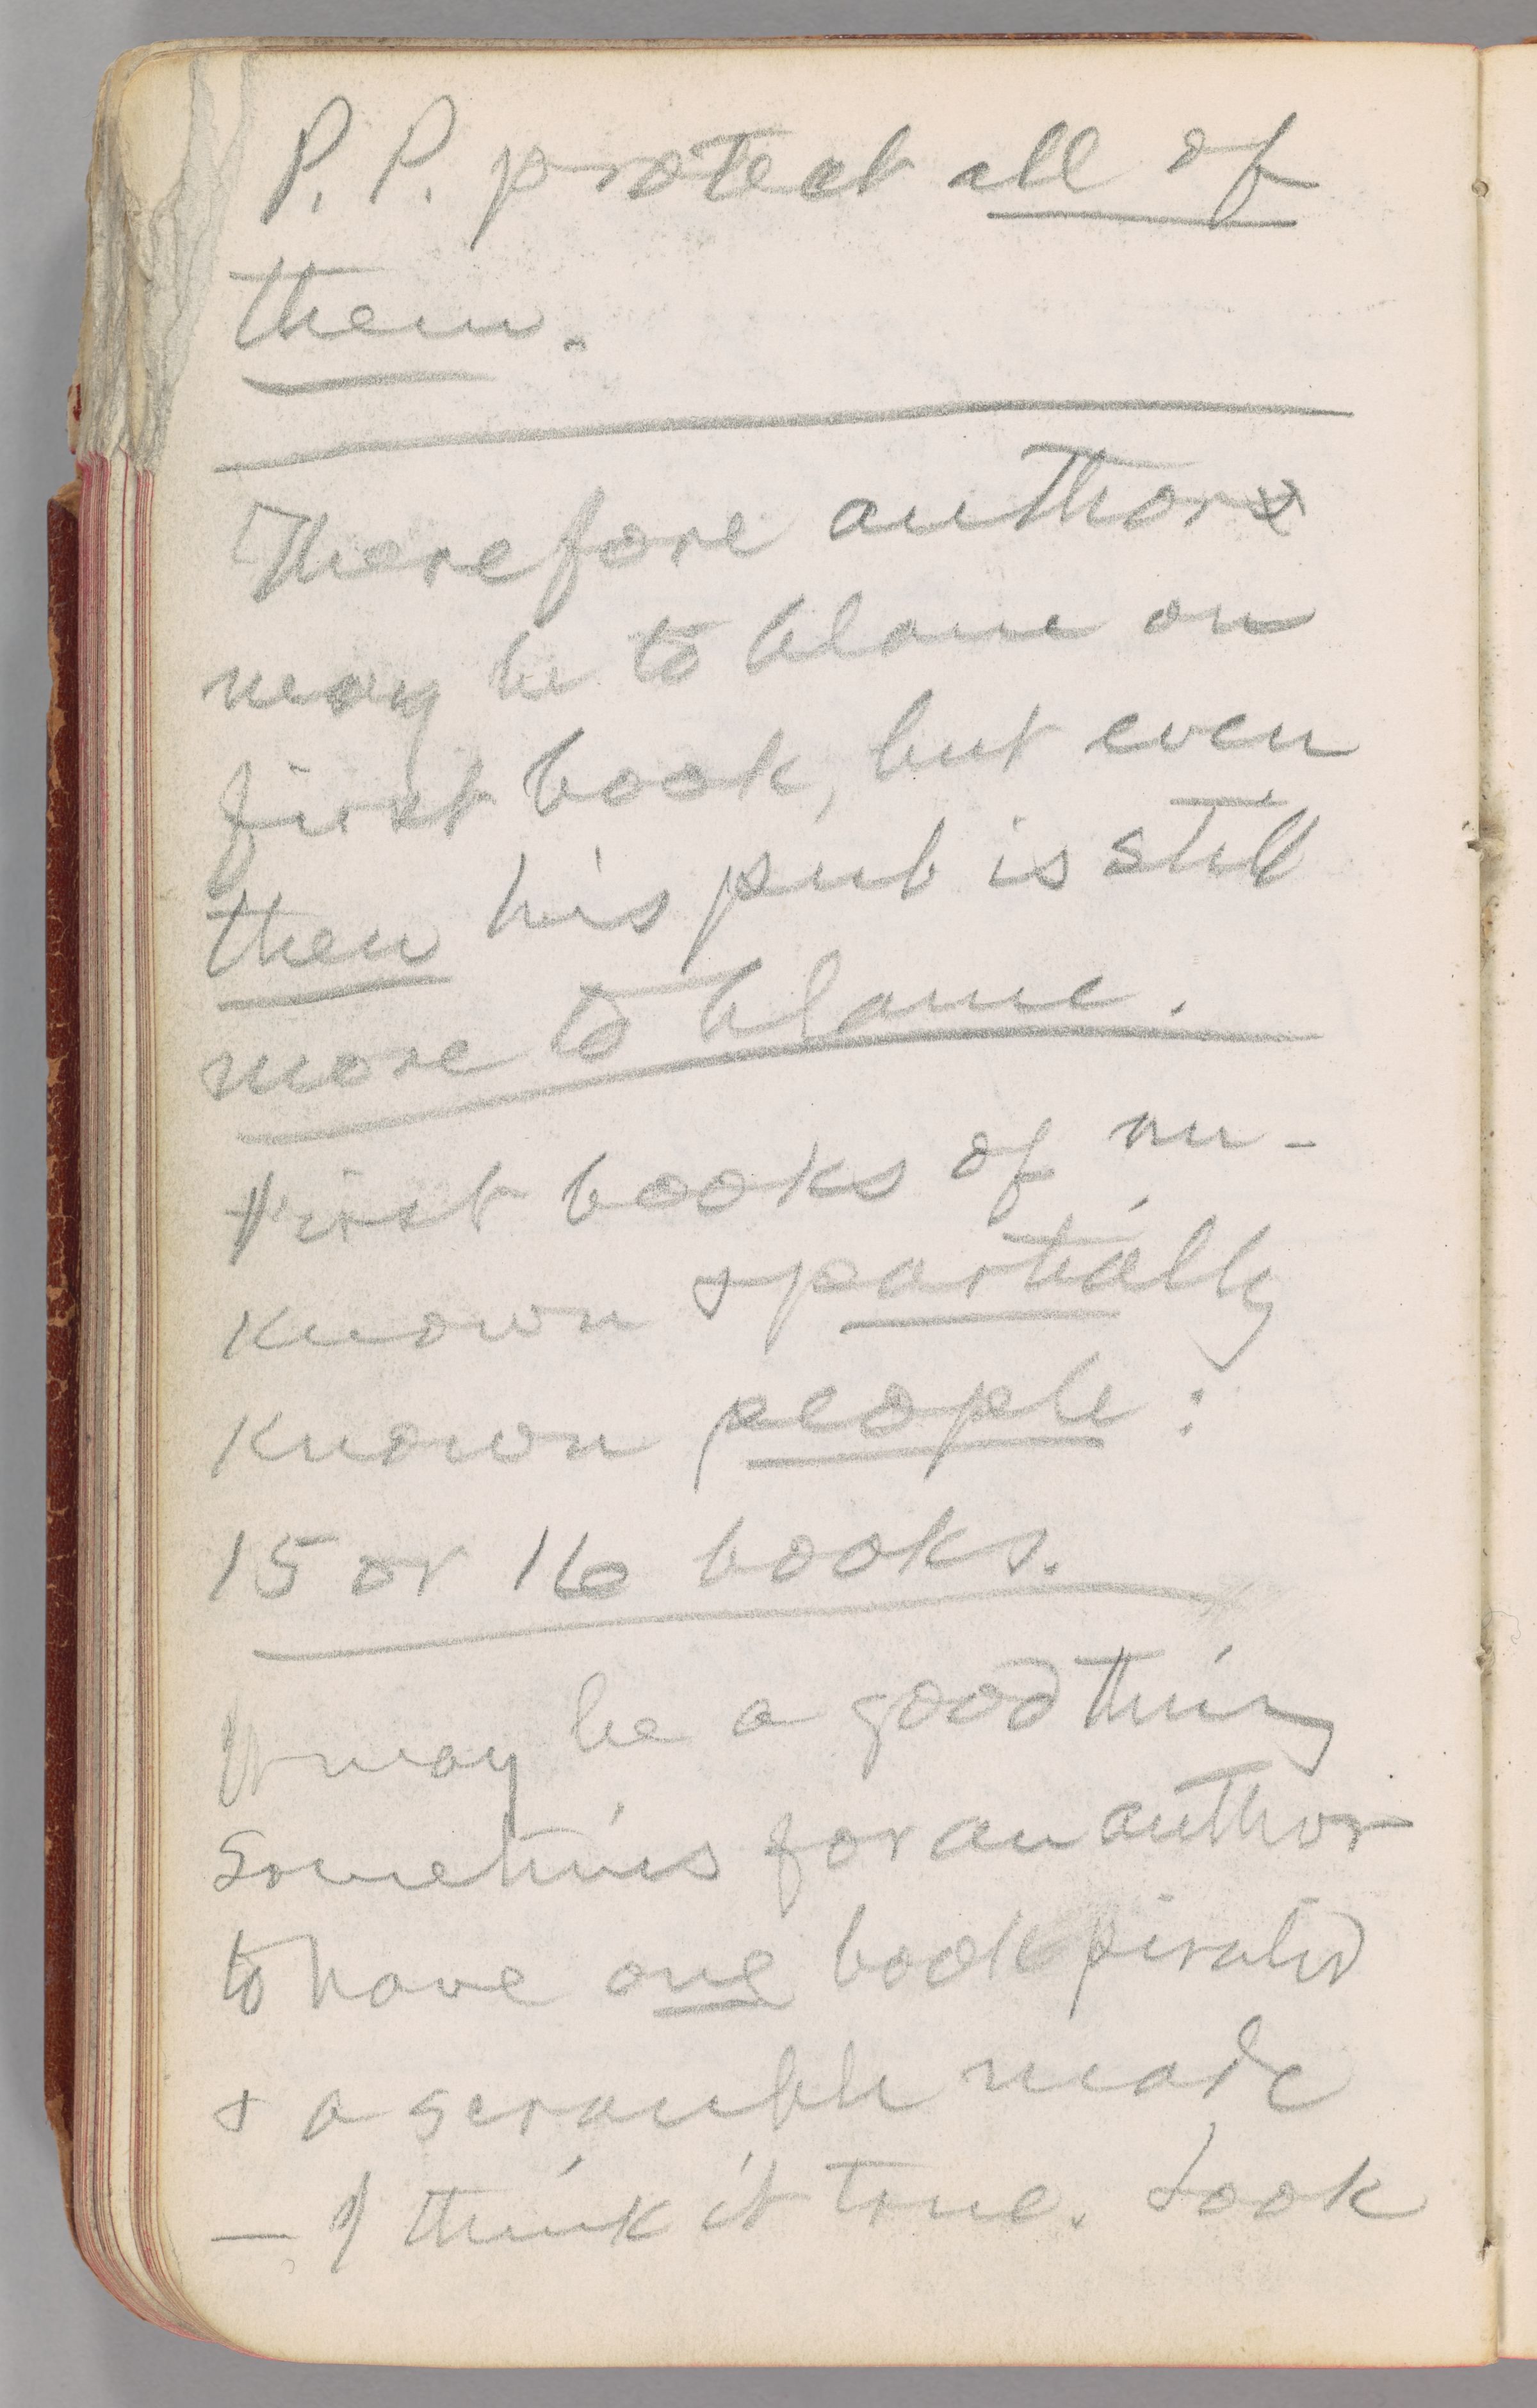 P. P. protect all of
them.
Therefore author
may be to blame on
first book, but even
then his pub is still
more to blame.
First books of un-
known & partially
known people:
15 or 16 books.
It may be a good thing
sometimes for an author
to have one book pirated
& a scramble made
— I think it true. Look